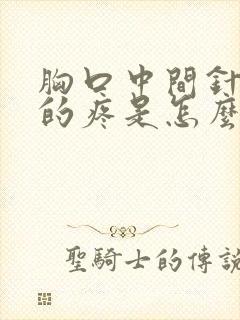 胸口中間針
的疼是怎麼
聖騎士的傳說